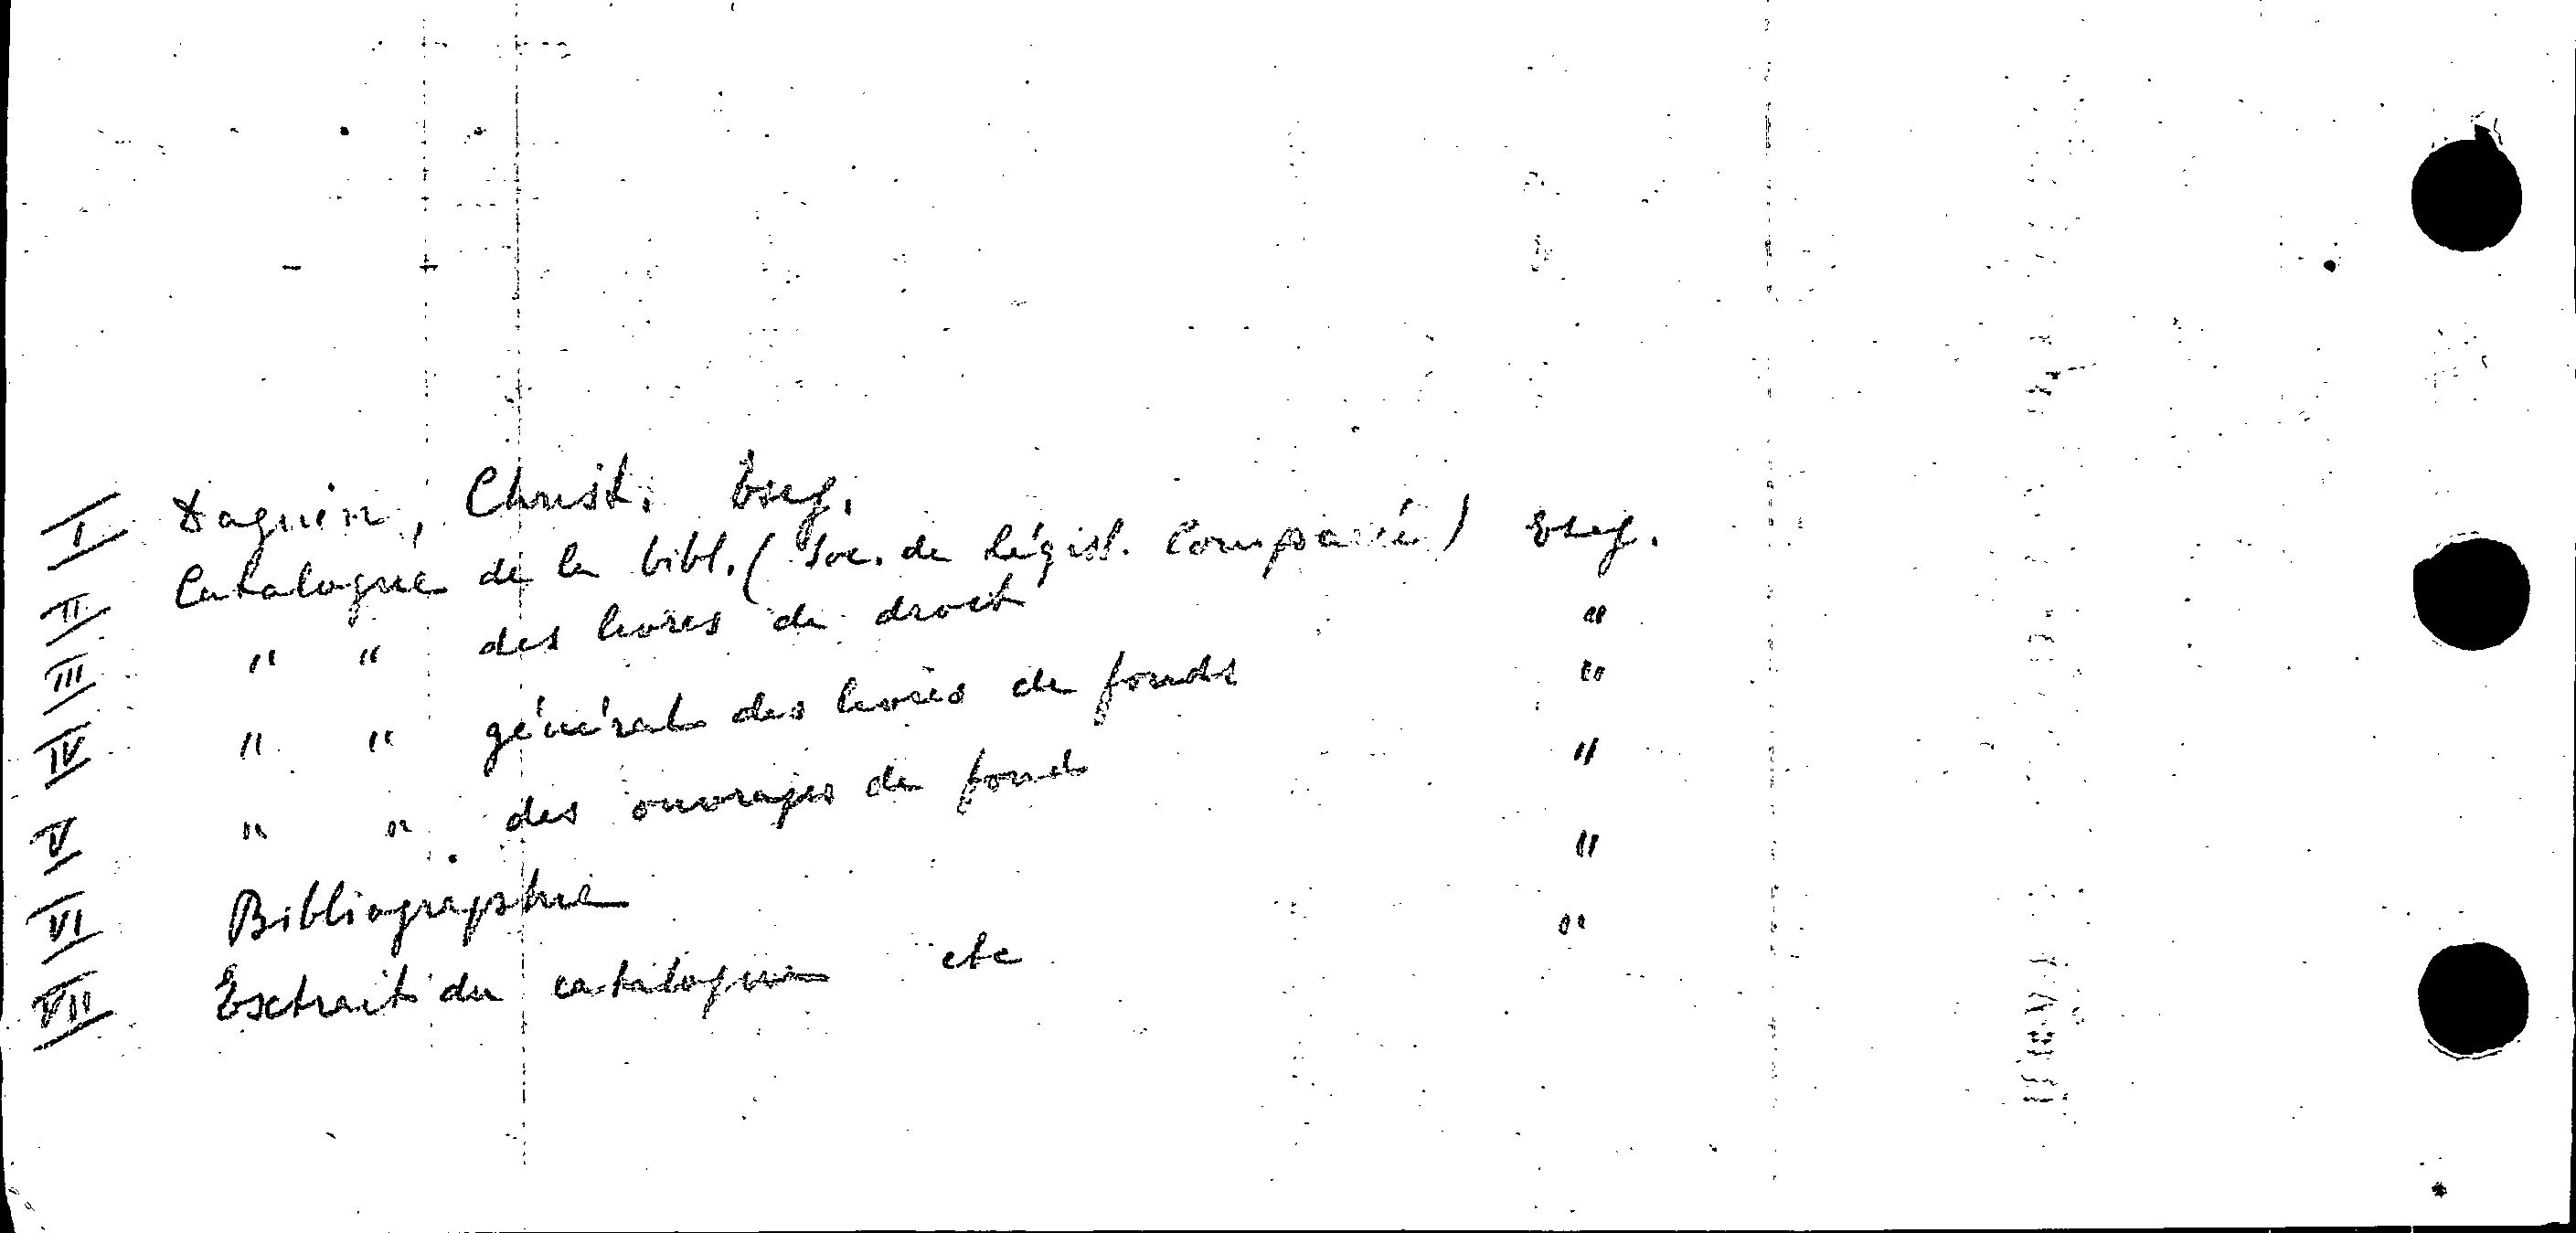 I Daguin, Christ. bseg.
II Catalogue de la bibl. (Soc. de législ. Comparée) bseg.
III " " des livres de droit "
IV " " général des livres de fonds "
V " " des ouvrages de fond "
VI Bibliographie "
VII Extrait du catalogue etc "